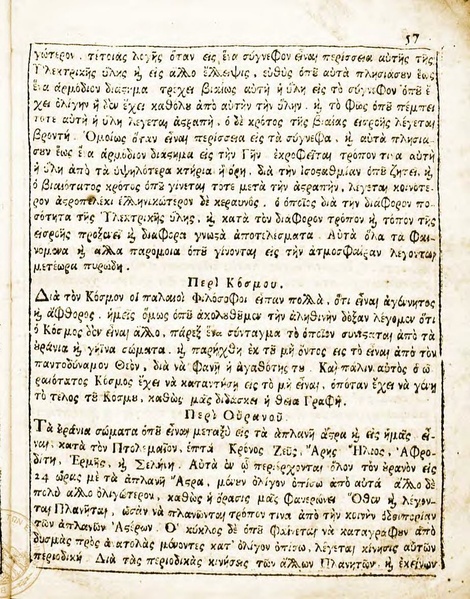 57
γώτερον. τέτοιας λογῆς ὅταν εἰς ἕνα σύγνεφον εἶναι περίσσεια αὐτῆς τῆς
Ἠλεκτρικῆς ὕλης ϗ εἰς ἄλλο ἔλλειψις, εὐθὺς ὁπȣ̃ αὐτὰ πλησιάσȣν ἕως
ἕνα ἁρμόδιον διάϛημα τρέχει βιαίως αὐτὴ ἡ ὕλη εἰς τὸ σύγνεφον ὁπȣ̃ ἔ-
χει ὀλίγην ἢ δὲν ἔχει καθόλȣ ἀπὸ αὐτὴν τὴν ὕλην. ϗ τὸ Φῶς ὁπȣ̃ πέμπει
τότε αὐτὴ ἡ ὕλη λέγεται ἀϛραπὴ, ὁ δὲ κρότος τῆς βιαίας εἰσροῆς λέγεται
βροντή. Ὁμοίως ὅταν εἶναι περίσσεια εἰς τὰ σύγνεφα, ϗ αὐτὰ πλησιά-
σȣν ἕως ἕνα ἁρμόδιον διάϛημα εἰς τὴν Γῆν. ἐκροφεῖται τρόπον τινὰ αὐτὴ
ἡ ὕλη ἀπὸ τὰ ὑψηλότερα κτήρια ἢ ὄρη. διὰ τὴν Ἰσοϛαθμίαν ὁπȣ̃ ζητεῖ. ϗ
ὁ βιαιότατος κρότος ὁπȣ̃ γίνεται τότε μετὰ τὴν ἀϛραπὴν, λέγεται κοινότε-
ρον ἀϛροπελέκι ἑλληνικώτερον δὲ κεραυνός. ὁ ὁποῖος διὰ τὴν διάφορον πο-
σότητα τῆς Ἠλεκτρικῆς ὕλης, ϗ κατὰ τὸν διάφορον τρόπον ϗ τόπον τῆς
εἰσροῆς προξενεῖ ϗ διάφορα γνωϛὰ ἀποτελέσματα. Αὐτὰ ὅλα τὰ Φαι-
νόμενα ϗ ἄλλα παρόμοια ὁπȣ̃ γίνονται εἰς τὴν ἀτμοσφαῖραν λέγονται
μετέωρα πυρώδη.
Περὶ Κόσμου.
Διὰ τὸν Κόσμον οἱ παλαιοὶ Φιλόσοφοι εἶπαν πολλὰ, ὅτι εἶναι ἀγέννητος
ϗ ἄφθορος. ἡμεῖς ὅμως ὁπȣ̃ ἀκολȣθȣ̃μεν τὴν ἀληθινὴν δόξαν λέγομεν ὅτι
ὁ Κόσμος δὲν εἶναι ἄλλο, πάρεξ ἕνα σύνταγμα τὸ ὁποῖον συνίϛαται ἀπὸ τὰ
ȣ̓ράνια ϗ γήϊνα σώματα. ϗ παρήχθη ἐκ τȣ̃ μὴ ὄντος εἰς τὸ εἶναι ἀπὸ τὸν
παντοδύναμον Θεὸν, διὰ νὰ Φανῇ ἡ ἀγαθότης τȣ. Καὶ πάλιν αὐτὸς ὁ ὡ-
ραιότατος Κόσμος ἔχει νὰ καταντήσῃ εἰς τὸ μὴ εἶναι. ὁπόταν ἔχει νὰ γένῃ
τὸ τέλος τȣ̃ Κόσμȣ, καθὼς μᾶς διδάσκει ἡ θεία Γραφή.
Περὶ Οὐρανοῦ.
Τὰ ȣ̓ράνια σώματα ὁπȣ̃ εἶναι μεταξὺ εἰς τὰ ἀπλανῆ ἄϛρα ϗ εἰς ἡμᾶς εἶ-
ναι. κατὰ τὸν Πτολεμαῖον. ἑπτὰ Κρόνος Ζεὺς, Ἄρης Ἥλιος, Ἀφρο-
δίτη, Ἑρμῆς, ϗ Σελήνη. Αὐτὰ ἐν ᾧ περιέρχονται ὅλον τὸν ȣ̓ρανὸν εἰς
24 ὥρας μὲ τὰ ἀπλανῆ Ἄϛρα, μένȣν ὀλίγον ὀπίσω ἀπὸ αὐτὰ ἄλλο δὲ
πολὺ ἄλλο ὀλιγώτερον, καθὼς ἡ ὅρασις μᾶς Φανερώνει Ὅθεν ϗ λέγον-
ται Πλανῆται, ὡσὰν νὰ πλανῶνται τρόπον τινὰ ἀπὸ τὴν κοινὴν ὁδοιπορίαν
τῶν ἀπλανῶν Ἀϛέρων. Ὁ κύκλος δὲ ὁπȣ̃ Φαίνεται νὰ καταγράφȣν ἀπὸ
δυσμὰς πρὸς ἀνατολὰς μένοντες κατ' ὀλίγον ὀπίσω, λέγεται κίνησις αὐτῶν
περιοδική. Διὰ τὰς περιοδικὰς κινήσεις τῶν ἄλλων Πλανητῶν, ϗ ἐκείνων